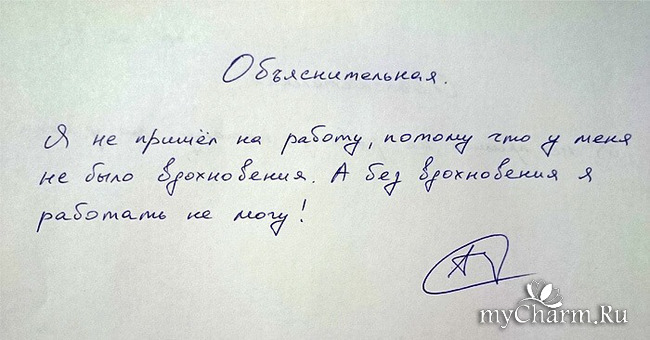 Объяснительная.
Я не пришёл на работу, потому что у меня
не было вдохновения. А без вдохновения я
работать не могу!
myCharm.Ru